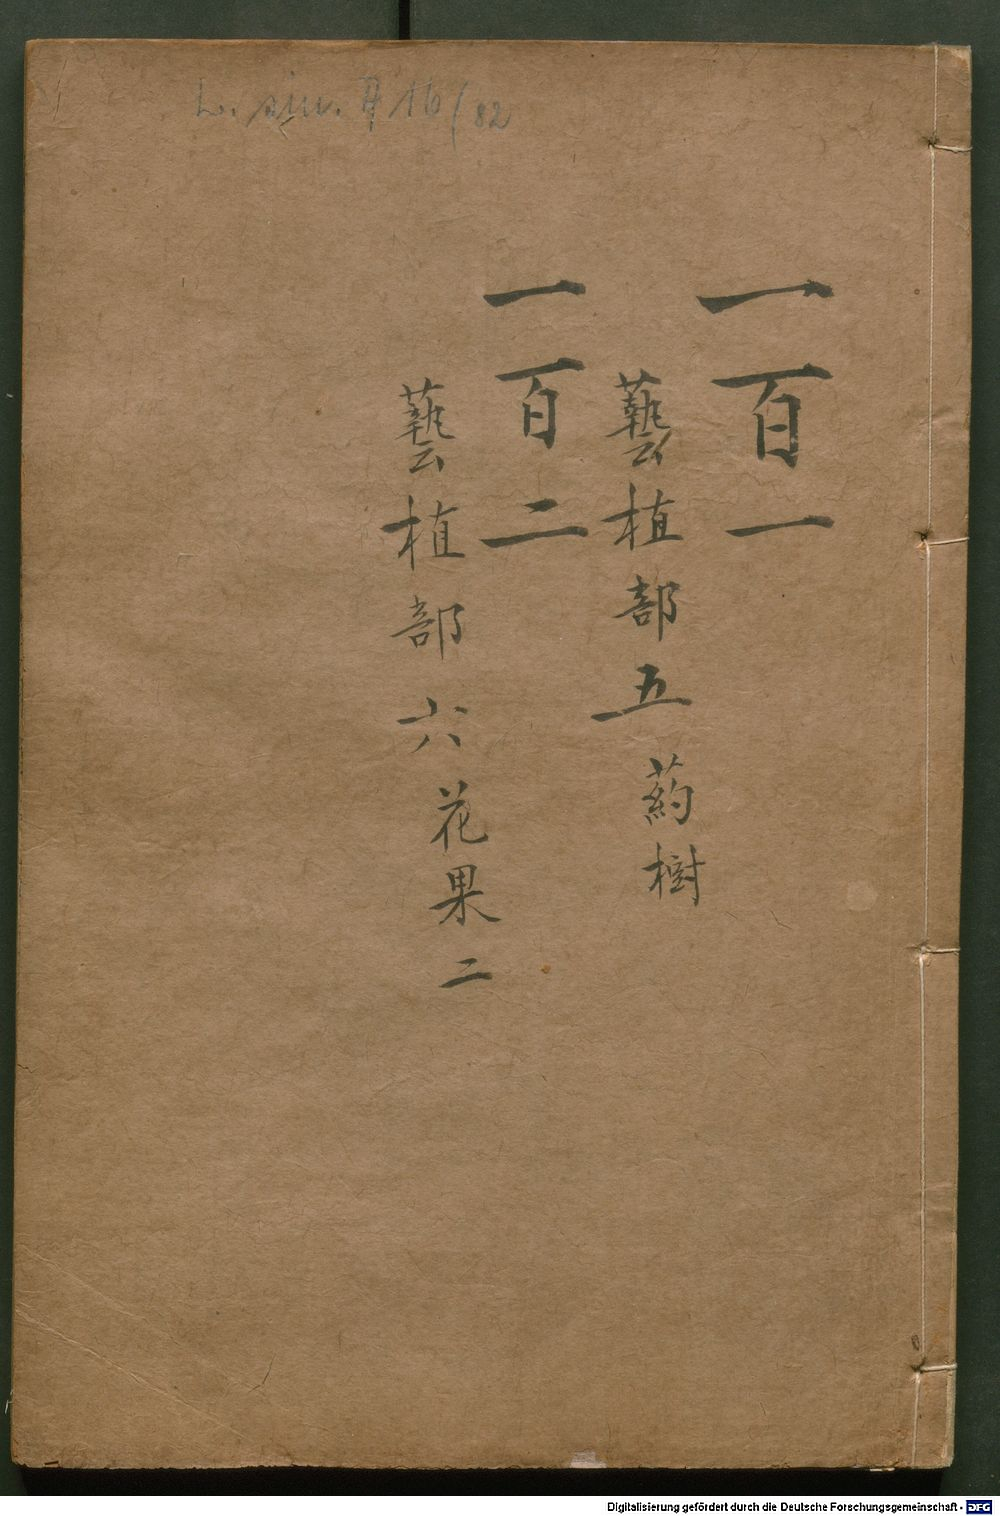 L. sin. A 16/82
一百一
藝植部五
葯樹
一百二
藝植部六
花果二
Digitalisierung gefördert durch die Deutsche Forschungsgemeinschaft - DFG